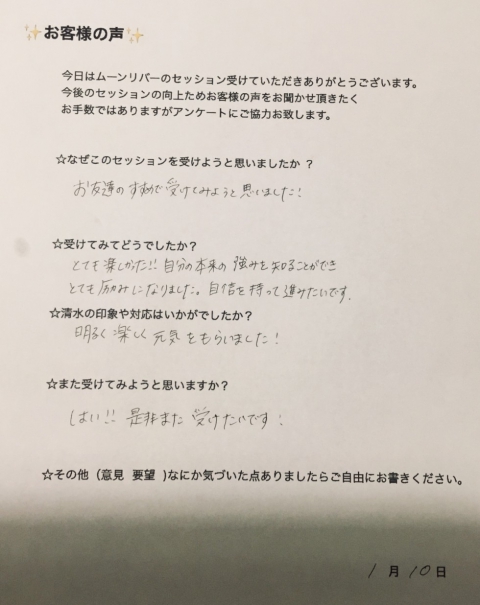 ✨お客様の声✨
今日はムーンリバーのセッション受けていただきありがとうございます。
今後のセッションの向上ためお客様の声をお聞かせ頂きたく
お手数ではありますがアンケートにご協力お致します。
☆なぜこのセッションを受けようと思いましたか ?
お友達のすすめで受けてみようと思いました!
☆受けてみてどうでしたか?
とても楽しかった!! 自分の本来の強みを知ることができ
とても励みになりました。自信を持って進みたいです.
☆清水の印象や対応はいかがでしたか?
明るく楽しく元気をもらいました!
☆また受けてみようと思いますか?
はい!! 是非また受けたいです!
☆その他 (意見 要望 )なにか気づいた点ありましたらご自由にお書きください。
1月10日